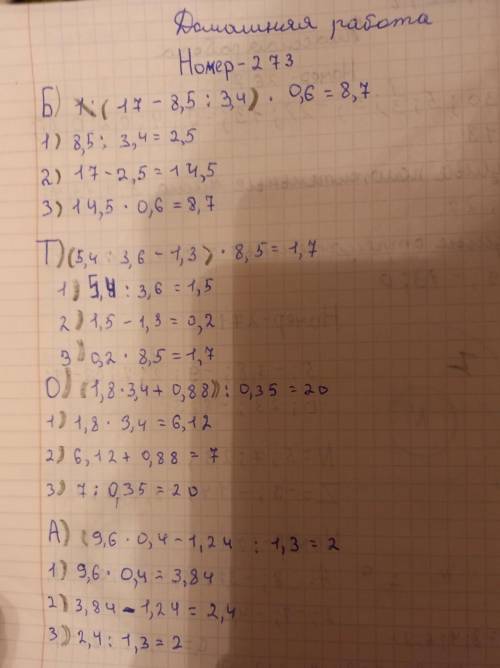 Домашняя работа
Номер-273
Б) (17 - 8,5 : 3,4) · 0,6 = 8,7
1) 8,5 : 3,4 = 2,5
2) 17 - 2,5 = 14,5
3) 14,5 · 0,6 = 8,7
Т) (5,4 : 3,6 - 1,3) · 8,5 = 1,7
1) 5,4 : 3,6 = 1,5
2) 1,5 - 1,3 = 0,2
3) 0,2 · 8,5 = 1,7
О) (1,8 · 3,4 + 0,88) : 0,35 = 20
1) 1,8 · 3,4 = 6,12
2) 6,12 + 0,88 = 7
3) 7 : 0,35 = 20
А) (9,6 · 0,4 - 1,24 : 1,3 = 2
1) 9,6 · 0,4 = 3,84
2) 3,84 - 1,24 = 2,4
3) 2,4 : 1,3 = 2